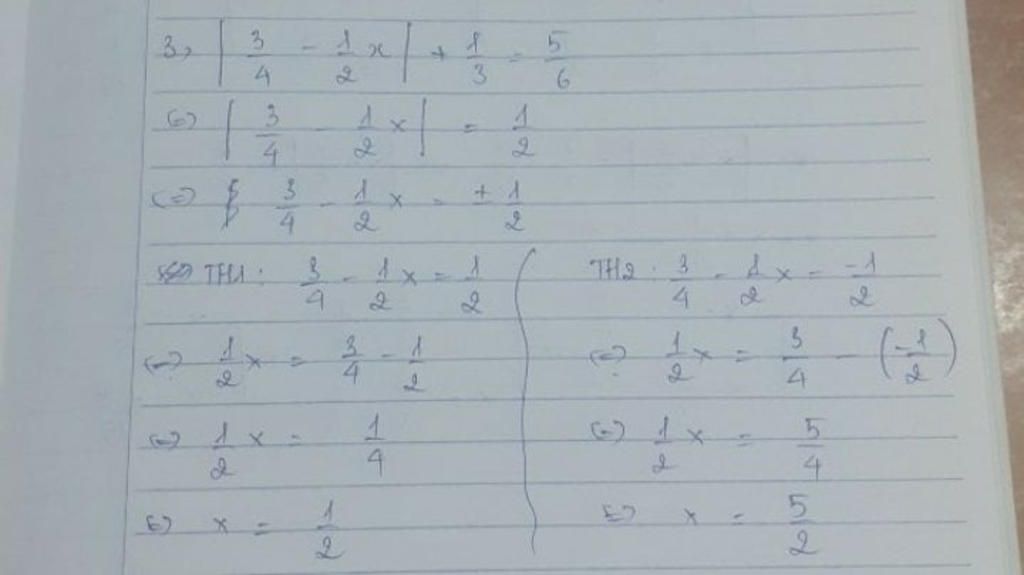 3, | 3/4 - 1/2 x | + 1/3 = 5/6
(=) | 3/4 - 1/2 x | = 1/2
(=) 3/4 - 1/2 x = ± 1/2
TH1 : 3/4 - 1/2 x = 1/2
(=) 1/2 x = 3/4 - 1/2
(=) 1/2 x = 1/4
(=) x = 1/2
TH2 : 3/4 - 1/2 x = -1/2
(=) 1/2 x = 3/4 - (-1/2)
(=) 1/2 x = 5/4
(=) x = 5/2